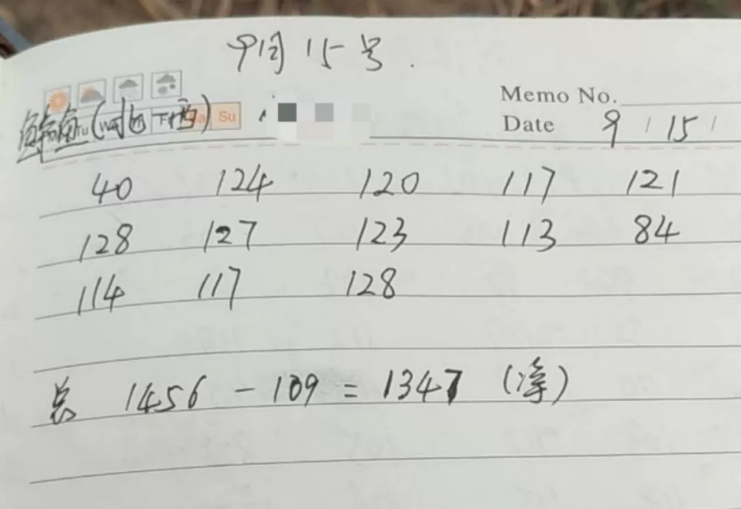 9月15号.
Memo No.
Date 9 / 15 /
Su
40 124 120 117 121
128 127 123 113 84
114 117 128
总 1456 - 109 = 1347 (净)